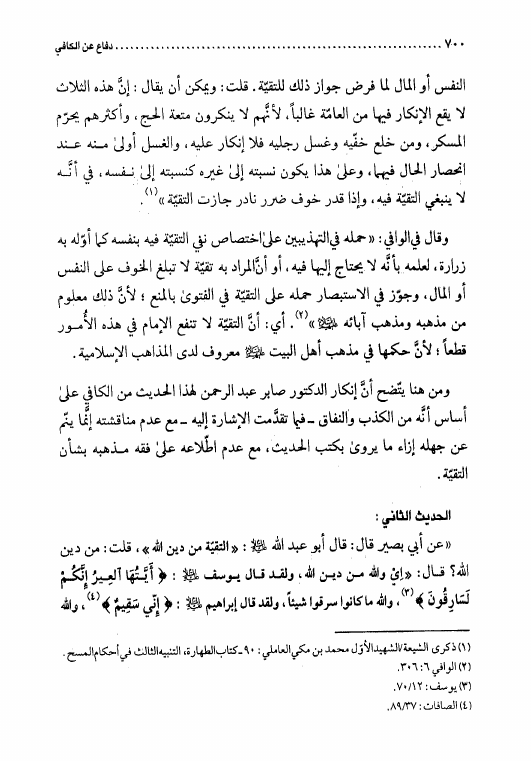 ٧٠٠ ........................................................................ دفاع عن الكافي
النفس أو المال لما فرض جواز ذلك للتقيّة. قلت: ويمكن أن يقال: إنَّ هذه الثلاث
لا يقع الإنكار فيها من العامّة غالباً، لأنَّهم لا ينكرون متعة الحج، وأكثرهم يحرّم
المسكر، ومن خلع خفّيه وغسل رجليه فلا إنكار عليه، والغسل أولىٰ منه عند
انحصار الحال فيهما، وعلىٰ هذا يكون نسبته إلىٰ غيره كنسبته إلىٰ نفسه، في أنَّه
لا ينبغي التقيّة فيه، وإذا قدر خوف ضرر نادر جازت التقيّة»(١).
وقال في الوافي: «حمله في التهذيبين علىٰ اختصاص نفي التقيّة فيه بنفسه كما أوّله به
زرارة، لعلمه بأنَّه لا يحتاج إليها فيه، أو أنَّ المراد به تقيّة لا تبلغ الخوف على النفس
أو المال، وجوّز في الاستبصار حمله على التقيّة في الفتوىٰ بالمنع ؛ لأنَّ ذلك معلوم
من مذهبه ومذهب آبائه ﷺ»(٢). أي: أنَّ التقيّة لا تنفع الإمام في هذه الأُمور
قطعاً ؛ لأنَّ حكمها في مذهب أهل البيت ﷺ معروف لدى المذاهب الإسلامية.
ومن هنا يتّضح أنَّ إنكار الدكتور صابر عبد الرحمن لهذا الحديث من الكافي علىٰ
أساس أنَّه من الكذب والنفاق ـ فيما تقدَّمت الإشارة إليه ـ مع عدم مناقشته إنَّما ينّم
عن جهله إزاء ما يروىٰ بكتب الحديث، مع عدم اطّلاعه علىٰ فقه مذهبه بشأن
التقيّة.
الحديث الثاني:
«عن أبي بصير قال: قال أبو عبد الله ﷺ: «التقيّة من دين الله»، قلت: من دين
الله؟ قال: «إي والله من دين الله، ولقد قال يوسف ﷺ: ﴿أَيَّتُهَا العِيرُ إِنَّكُمْ
لَسَارِقُونَ﴾(٣)، والله ما كانوا سرقوا شيئاً، ولقد قال إبراهيم ﷺ: ﴿إِنِّي سَقِيمٌ﴾(٤)، والله
(١) ذكرى الشيعة/الشهيد الأوّل محمد بن مكي العاملي: ٩٠ ـ كتاب الطهارة، التنبيه الثالث في أحكام المسح.
(٢) الوافي ٦: ٣٠٦.
(٣) يوسف: ٧٠/١٢.
(٤) الصافات: ٨٩/٣٧.